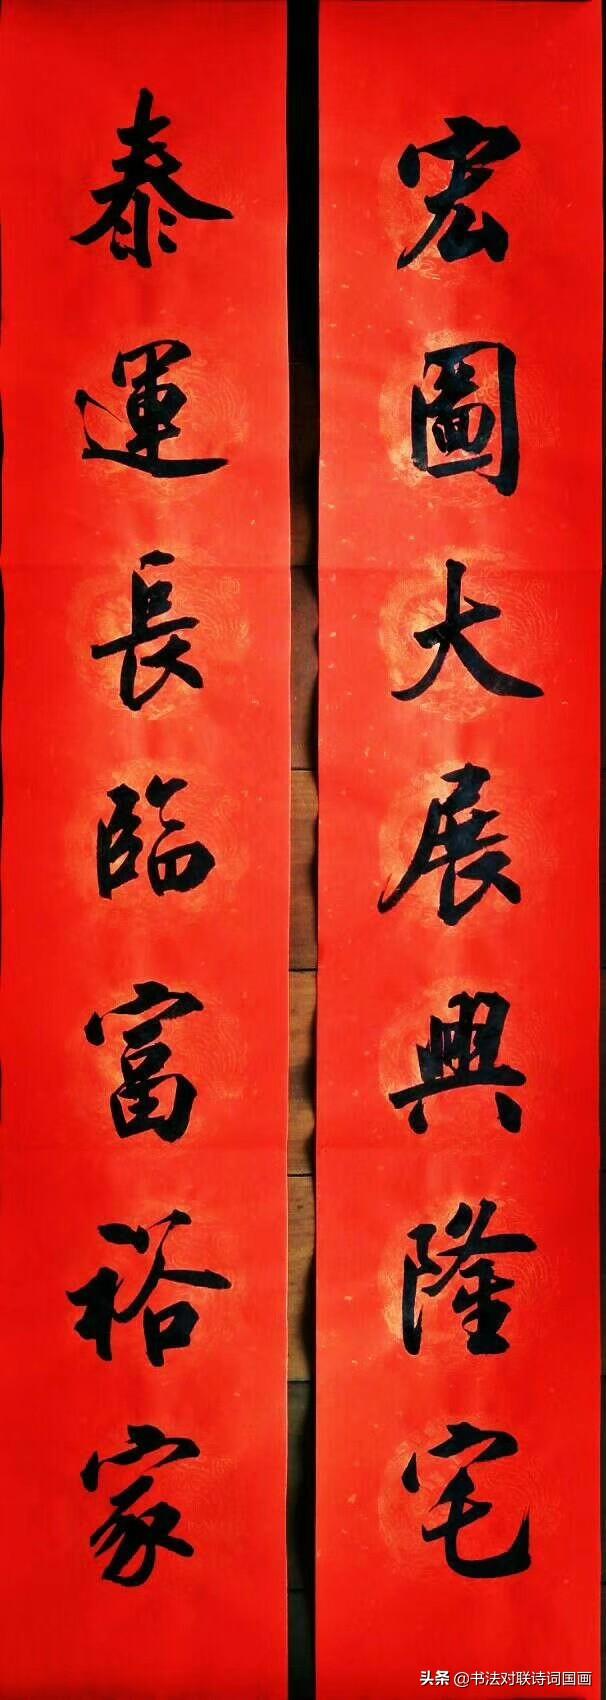 宏圖大展興隆宅
泰運長臨富裕家
头条 @书法对联诗词国画